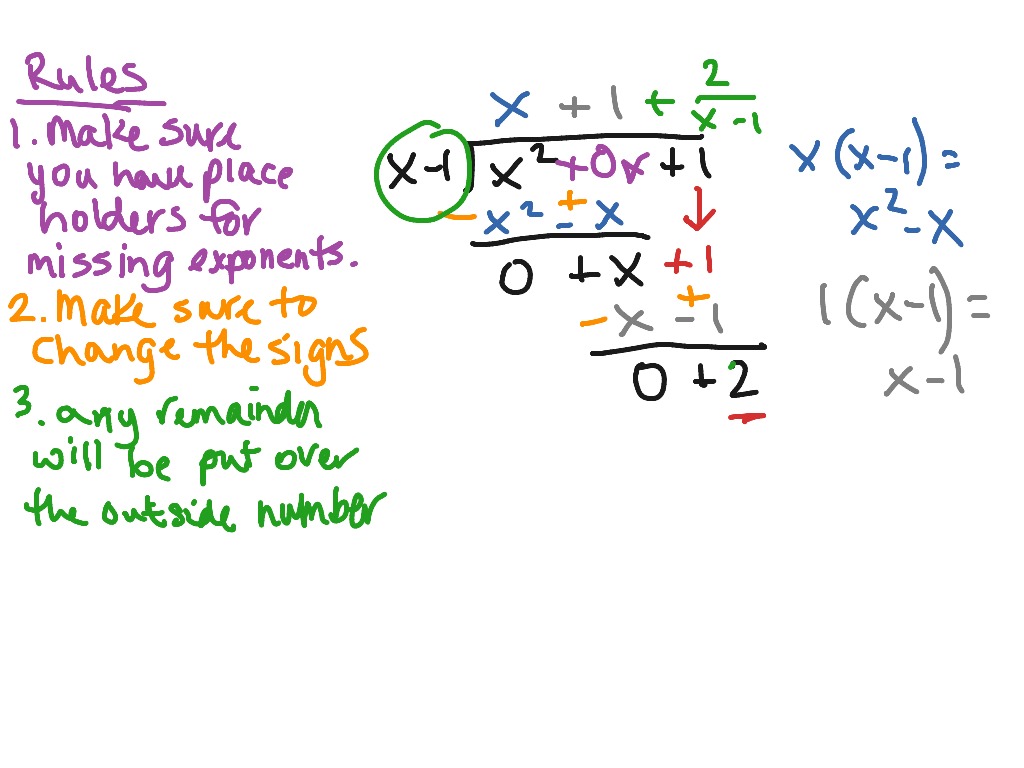 Rules
1. Make sure
you have place
holders for
missing exponents.
2. Make sure to
change the signs
3. any remainder
will be put over
the outside number
2
x + 1 + ―
x - 1
x-1 x² +0x +1
- x² + - x ↓
0 + x +1
- x + - 1
0 + 2
x (x-1) =
x² - x
1 (x-1) =
x - 1